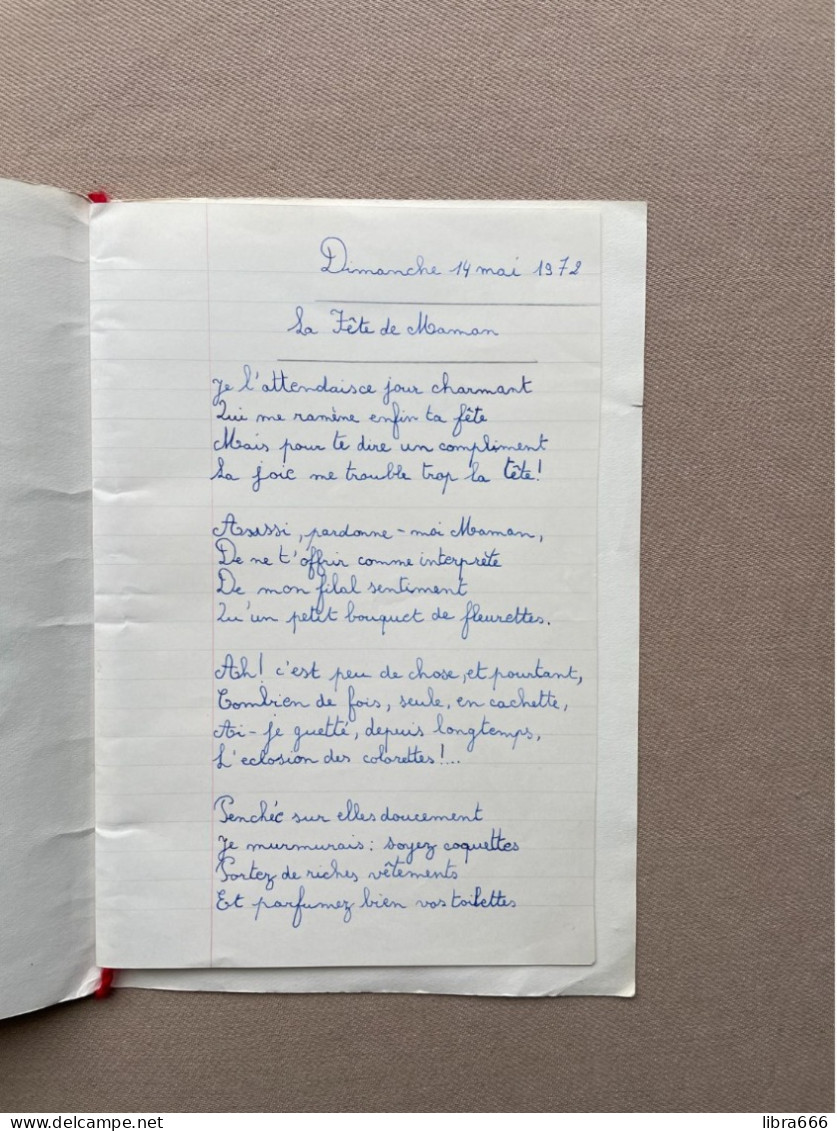 Dimanche 14 mai 1972
La Fête de Maman
Je l'attendaisce jour charmant
Qui me ramène enfin ta fête
Mais pour te dire un compliment
La joie me trouble trop la tête!
Aussi, pardonne-moi Maman,
De ne t'offrir comme interprète
De mon filal sentiment
Qu'un petit bouquet de fleurettes.
Ah! c'est peu de chose, et pourtant,
Combien de fois, seule, en cachette,
Ai-je guetté, depuis longtemps,
L'eclosion des colorettes!...
Penchée sur elles doucement
Je murmurais: soyez coquettes
Portez de riches vêtements
Et parfumez bien vos toilettes
delcampe.net
libra666